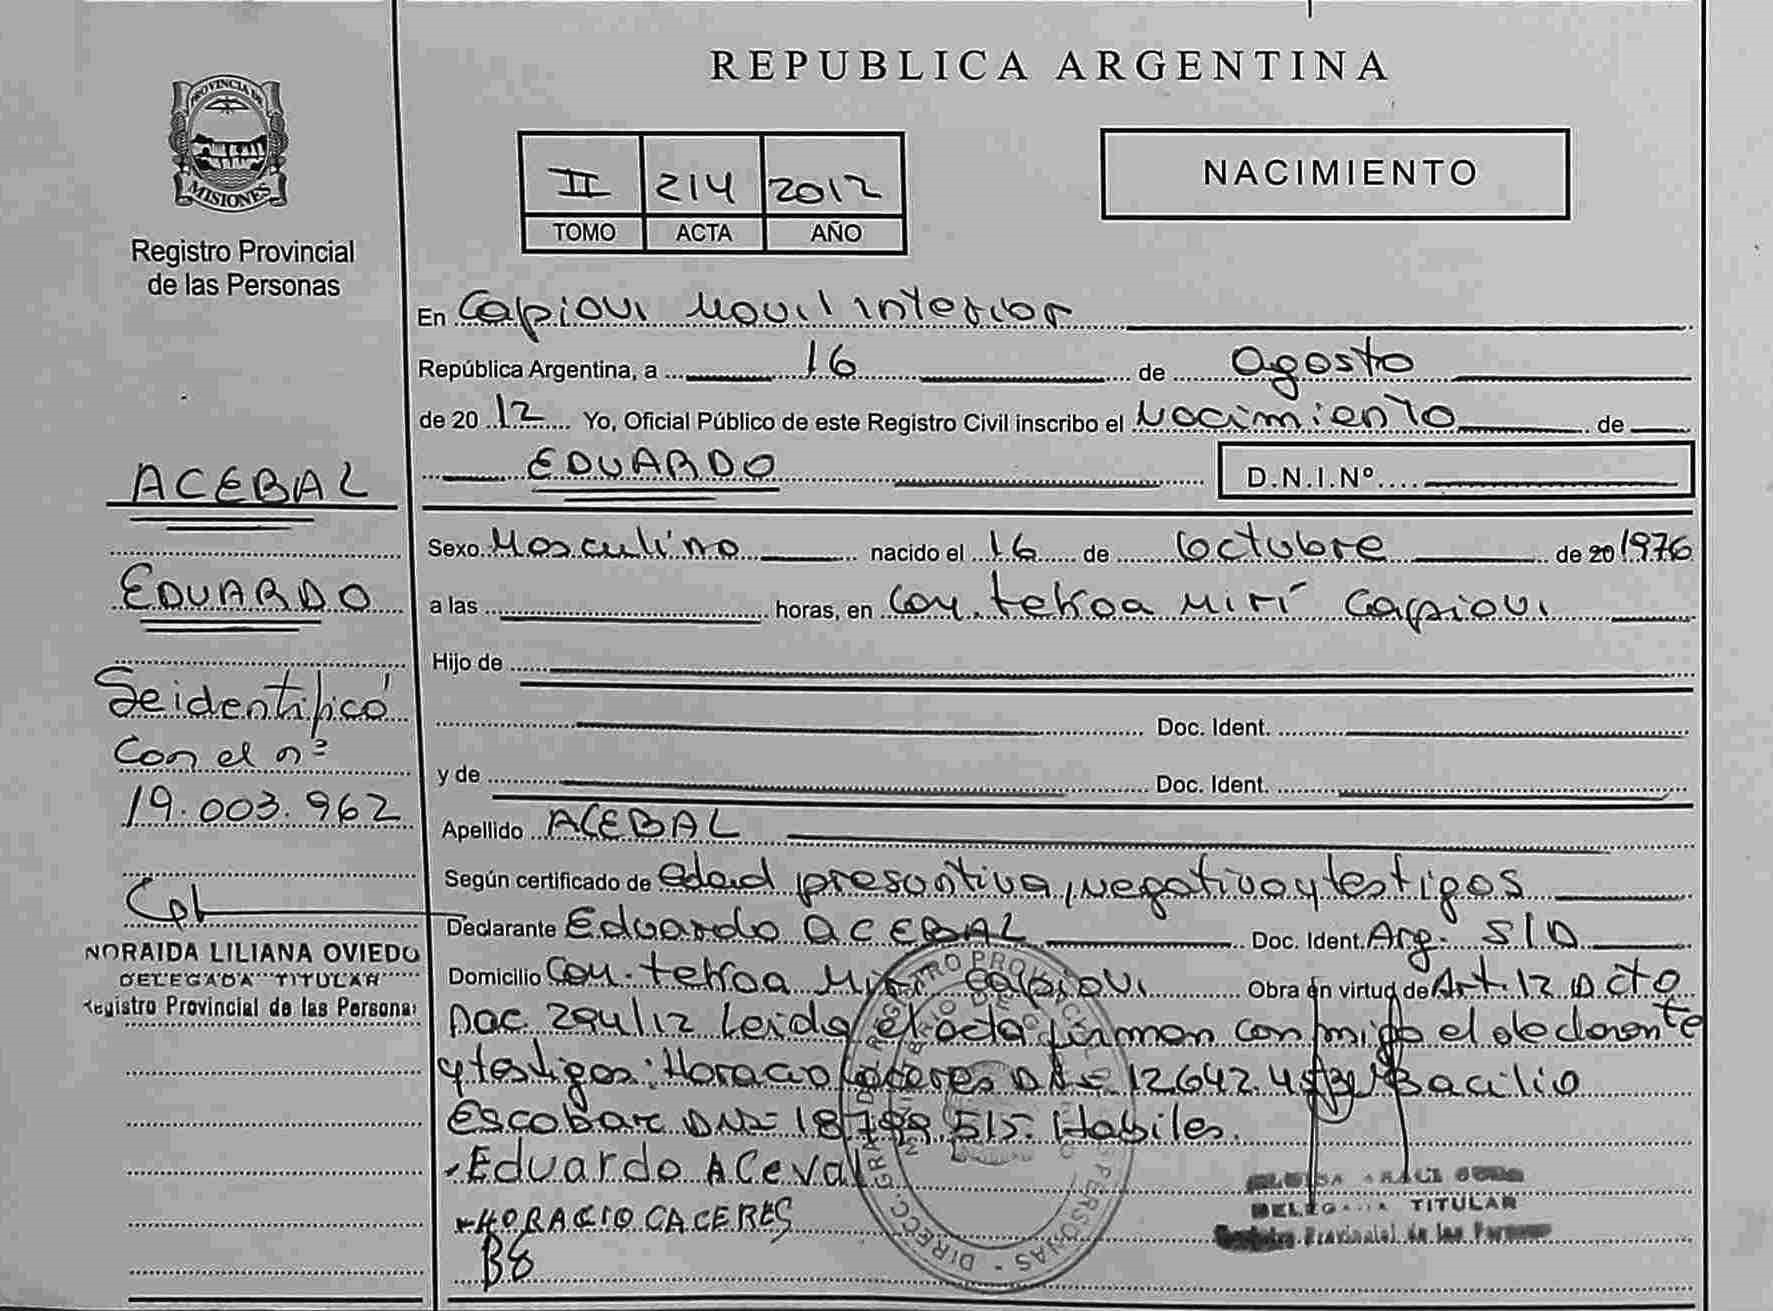 PROVINCIA DE
MISIONES
Registro Provincial
de las Personas
REPUBLICA ARGENTINA
II 214 2012
TOMO ACTA AÑO
NACIMIENTO
En Capiovi Movil interior
República Argentina, a 16 de agosto
de 20 12 Yo, Oficial Público de este Registro Civil inscribo el Nacimiento de
EDUARDO D.N.I.Nº
Sexo Masculino nacido el 16 de octubre de 20 1976
a las horas, en Com. tekoa Mirí Capiovi
Hijo de
Doc. Ident.
y de Doc. Ident.
Apellido ACEBAL
Según certificado de edad presuntiva, negativo y testigos
Declarante Eduardo ACEBAL Doc. Ident. Arg. S/D
Domicilio Com. tekoa Miri Capiovi Obra en virtud de Art. 12 Dcto
Nac. 294/12 Leida el acta firman conmigo el declarante
y testigos: Horacio Caceres DNI= 12.642.4 Bacilio
Escobar DNI= 18.799.515. Habiles.
Eduardo ACeval
HORACIO CACERES
BE
ACEBAL
EDUARDO
Se identificó
Con el nº
19.003.962
NORAIDA LILIANA OVIEDO
DELEGADA TITULAR
Registro Provincial de las Personas
DELEGADA TITULAR
Registro Provincial de las Personas